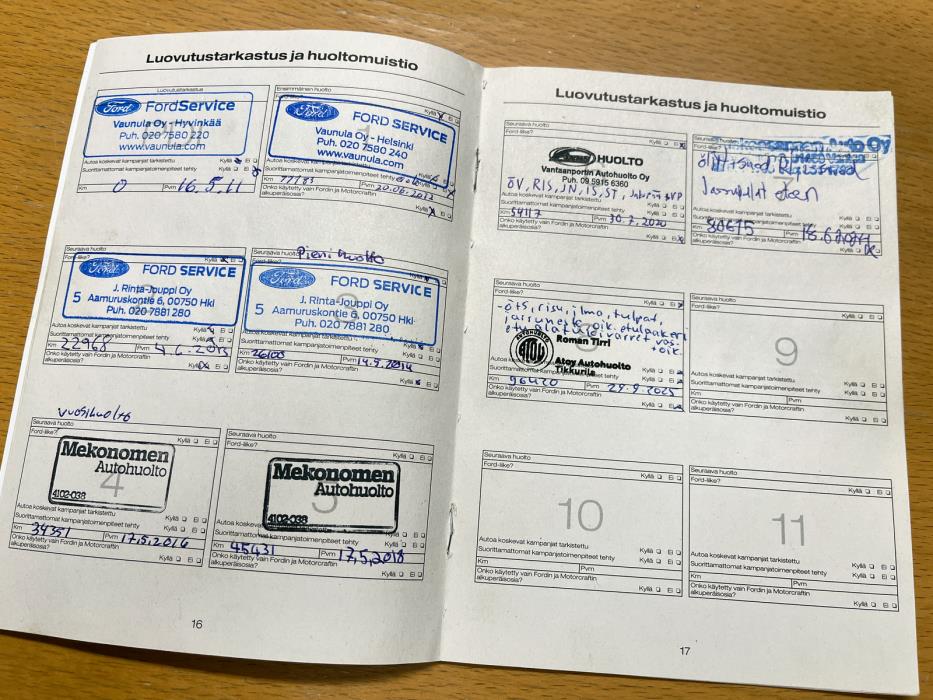 Luovutustarkastus ja huoltomuistio
Luovutustarkastus
Ford FordService
Vaunula Oy - Hyvinkää
Puh. 020 7580 220
www.vaunula.com
Autoa koskevat kampanjat tarkistettu Kyllä Ei
Suorittamattomat kampanjatoimenpiteet tehty
Km 0 Pvm 16.5.11
Ensimmäinen huolto
Ford-liike? Kyllä Ei
Ford FORD SERVICE
Vaunula Oy - Helsinki
Puh. 020 7580 240
www.vaunula.com
Autoa koskevat kampanjat
Suorittamattomat kampanjatoimenpiteet
Km Pvm 20.06.2012
Onko käytetty vain Fordin ja Motorcraftin
alkuperäisosia? Kyllä Ei
Seuraava huolto
Ford-liike?
Ford FORD SERVICE
5 J. Rinta-Jouppi Oy
Aamuruskontie 6, 00750 Hki
Puh. 020 7881 280
Autoa koskevat kampanjat tarkistettu Kyllä
Suorittamattomat kampanjatoimenpiteet tehty Kyllä
Km 22968 Pvm 4.6.2013
Onko käytetty vain Fordin ja Motorcraftin
alkuperäisosia? Kyllä Ei
Pieni huolto
Seuraava huolto
Ford-liike? Kyllä Ei
Ford FORD SERVICE
5 J. Rinta-Jouppi Oy
Aamuruskontie 6, 00750 Hki
Puh. 020 7881 280
Autoa koskevat kampanjat tarkistettu Kyllä Ei
Suorittamattomat kampanjatoimenpiteet tehty Kyllä Ei
Km 26100 Pvm 14.9.2014
Onko käytetty vain Fordin ja Motorcraftin
alkuperäisosia? Kyllä Ei
vuosihuolto
Seuraava huolto
Ford-liike? Kyllä Ei
Mekonomen
Autohuolto
4
4102-038
Autoa koskevat kampanjat tarkistettu
Suorittamattomat kampanjatoimenpiteet tehty Kyllä Ei
Km 34351 Pvm 17.5.2016
Onko käytetty vain Fordin ja Motorcraftin
alkuperäisosia? Kyllä Ei
Seuraava huolto
Ford-liike? Kyllä Ei
Mekonomen
Autohuolto
5
4102-038
Autoa koskevat kampanjat tarkistettu
Suorittamattomat kampanjatoimenpiteet tehty Kyllä Ei
Km 45431 Pvm 17.5.2018
Onko käytetty vain Fordin ja Motorcraftin
alkuperäisosia? Kyllä Ei
16
Luovutustarkastus ja huoltomuistio
Seuraava huolto
Ford-liike? Kyllä Ei
HUOLTO
Vantaanportin Autohuolto Oy
Puh. 09 5915 6360
ÖV, RIS, JN, IS, ST,
Suorittamattomat kampanjatoimenpiteet tehty Kyllä Ei
Km 54117 Pvm 30.7.2020
Onko käytetty vain Fordin ja Motorcraftin
alkuperäisosia? Kyllä Ei
Seuraava
Ford-liike?
Auto Oy
Jarrupalat eteen
Kyllä Ei
Suorittamattomat kampanjatoimenpiteet tehty Kyllä Ei
Km 80675 Pvm
Onko käytetty vain Fordin ja Motorcraftin
alkuperäisosia? Kyllä Ei
Seuraava huolto
Ford-liike? Kyllä
-öts, risu, ilma, tulpat,
8
Roman Tirri
ATOY
Atoy Autohuolto
Tikkurila
Suorittamattomat kampanjatoimenpiteet tehty Kyllä Ei
Km 96420 Pvm 29.9.2025
Onko käytetty vain Fordin ja Motorcraftin
alkuperäisosia? Kyllä Ei
Seuraava huolto
Ford-liike? Kyllä Ei
9
Autoa koskevat kampanjat tarkistettu Kyllä Ei
Suorittamattomat kampanjatoimenpiteet tehty Kyllä Ei
Km Pvm
Onko käytetty vain Fordin ja Motorcraftin
alkuperäisosia? Kyllä Ei
Seuraava huolto
Ford-liike? Kyllä Ei
10
Autoa koskevat kampanjat tarkistettu Kyllä Ei
Suorittamattomat kampanjatoimenpiteet tehty Kyllä Ei
Km Pvm
Onko käytetty vain Fordin ja Motorcraftin
alkuperäisosia? Kyllä Ei
Seuraava huolto
Ford-liike? Kyllä Ei
11
Autoa koskevat kampanjat tarkistettu Kyllä Ei
Suorittamattomat kampanjatoimenpiteet tehty Kyllä Ei
Km Pvm
Onko käytetty vain Fordin ja Motorcraftin
alkuperäisosia? Kyllä Ei
17